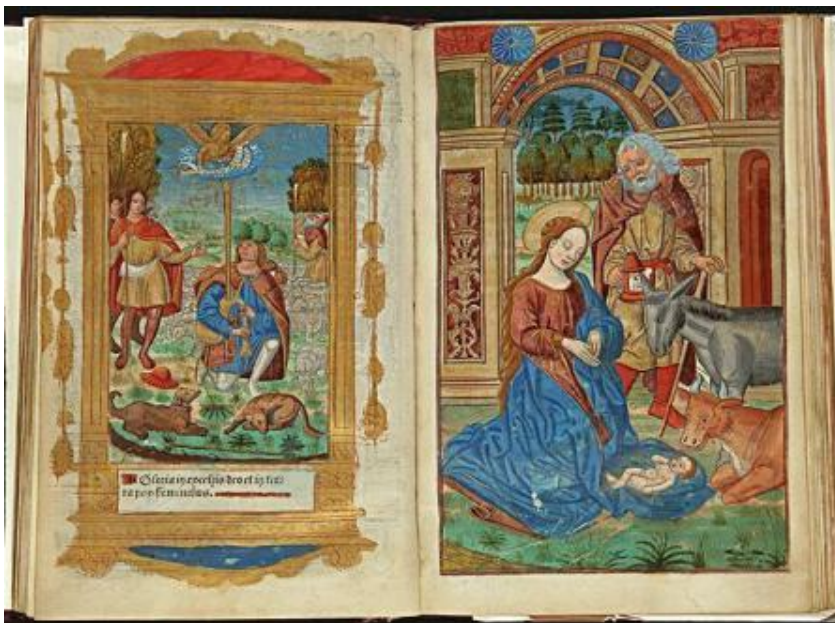 Gloria in excelsis deo et in ter
ra pax hominibus.